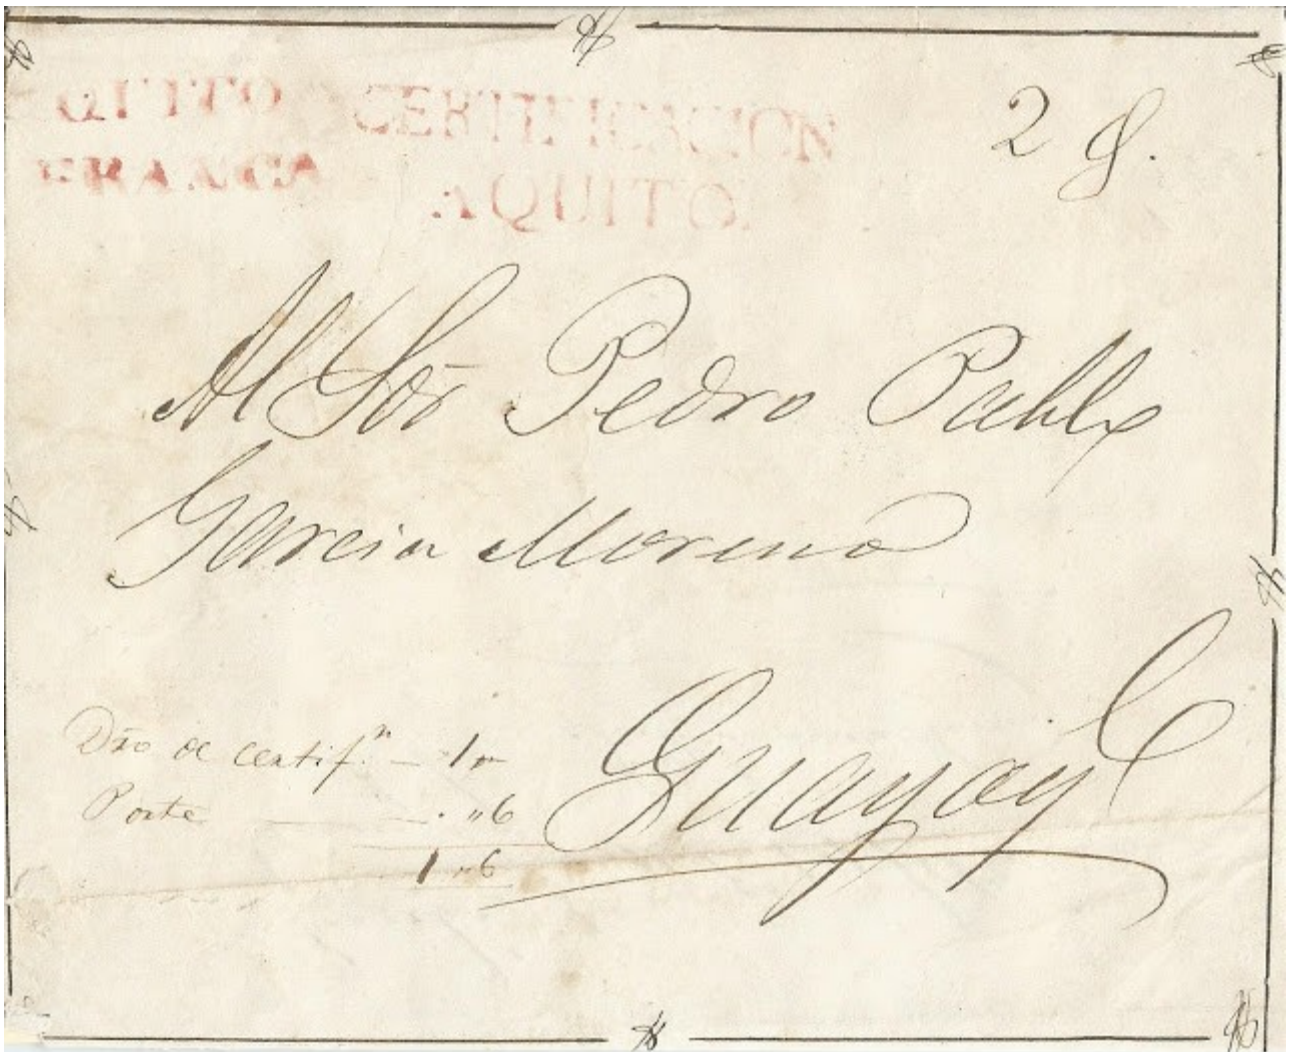 QUITO
FRANCA
CERTIFICACION
AQUITO.
2
Al Sõr Pedro Pablo
Garcia Moreno
Guayaql
Dro de certif.n — 1
Porte — . "6
1 "6